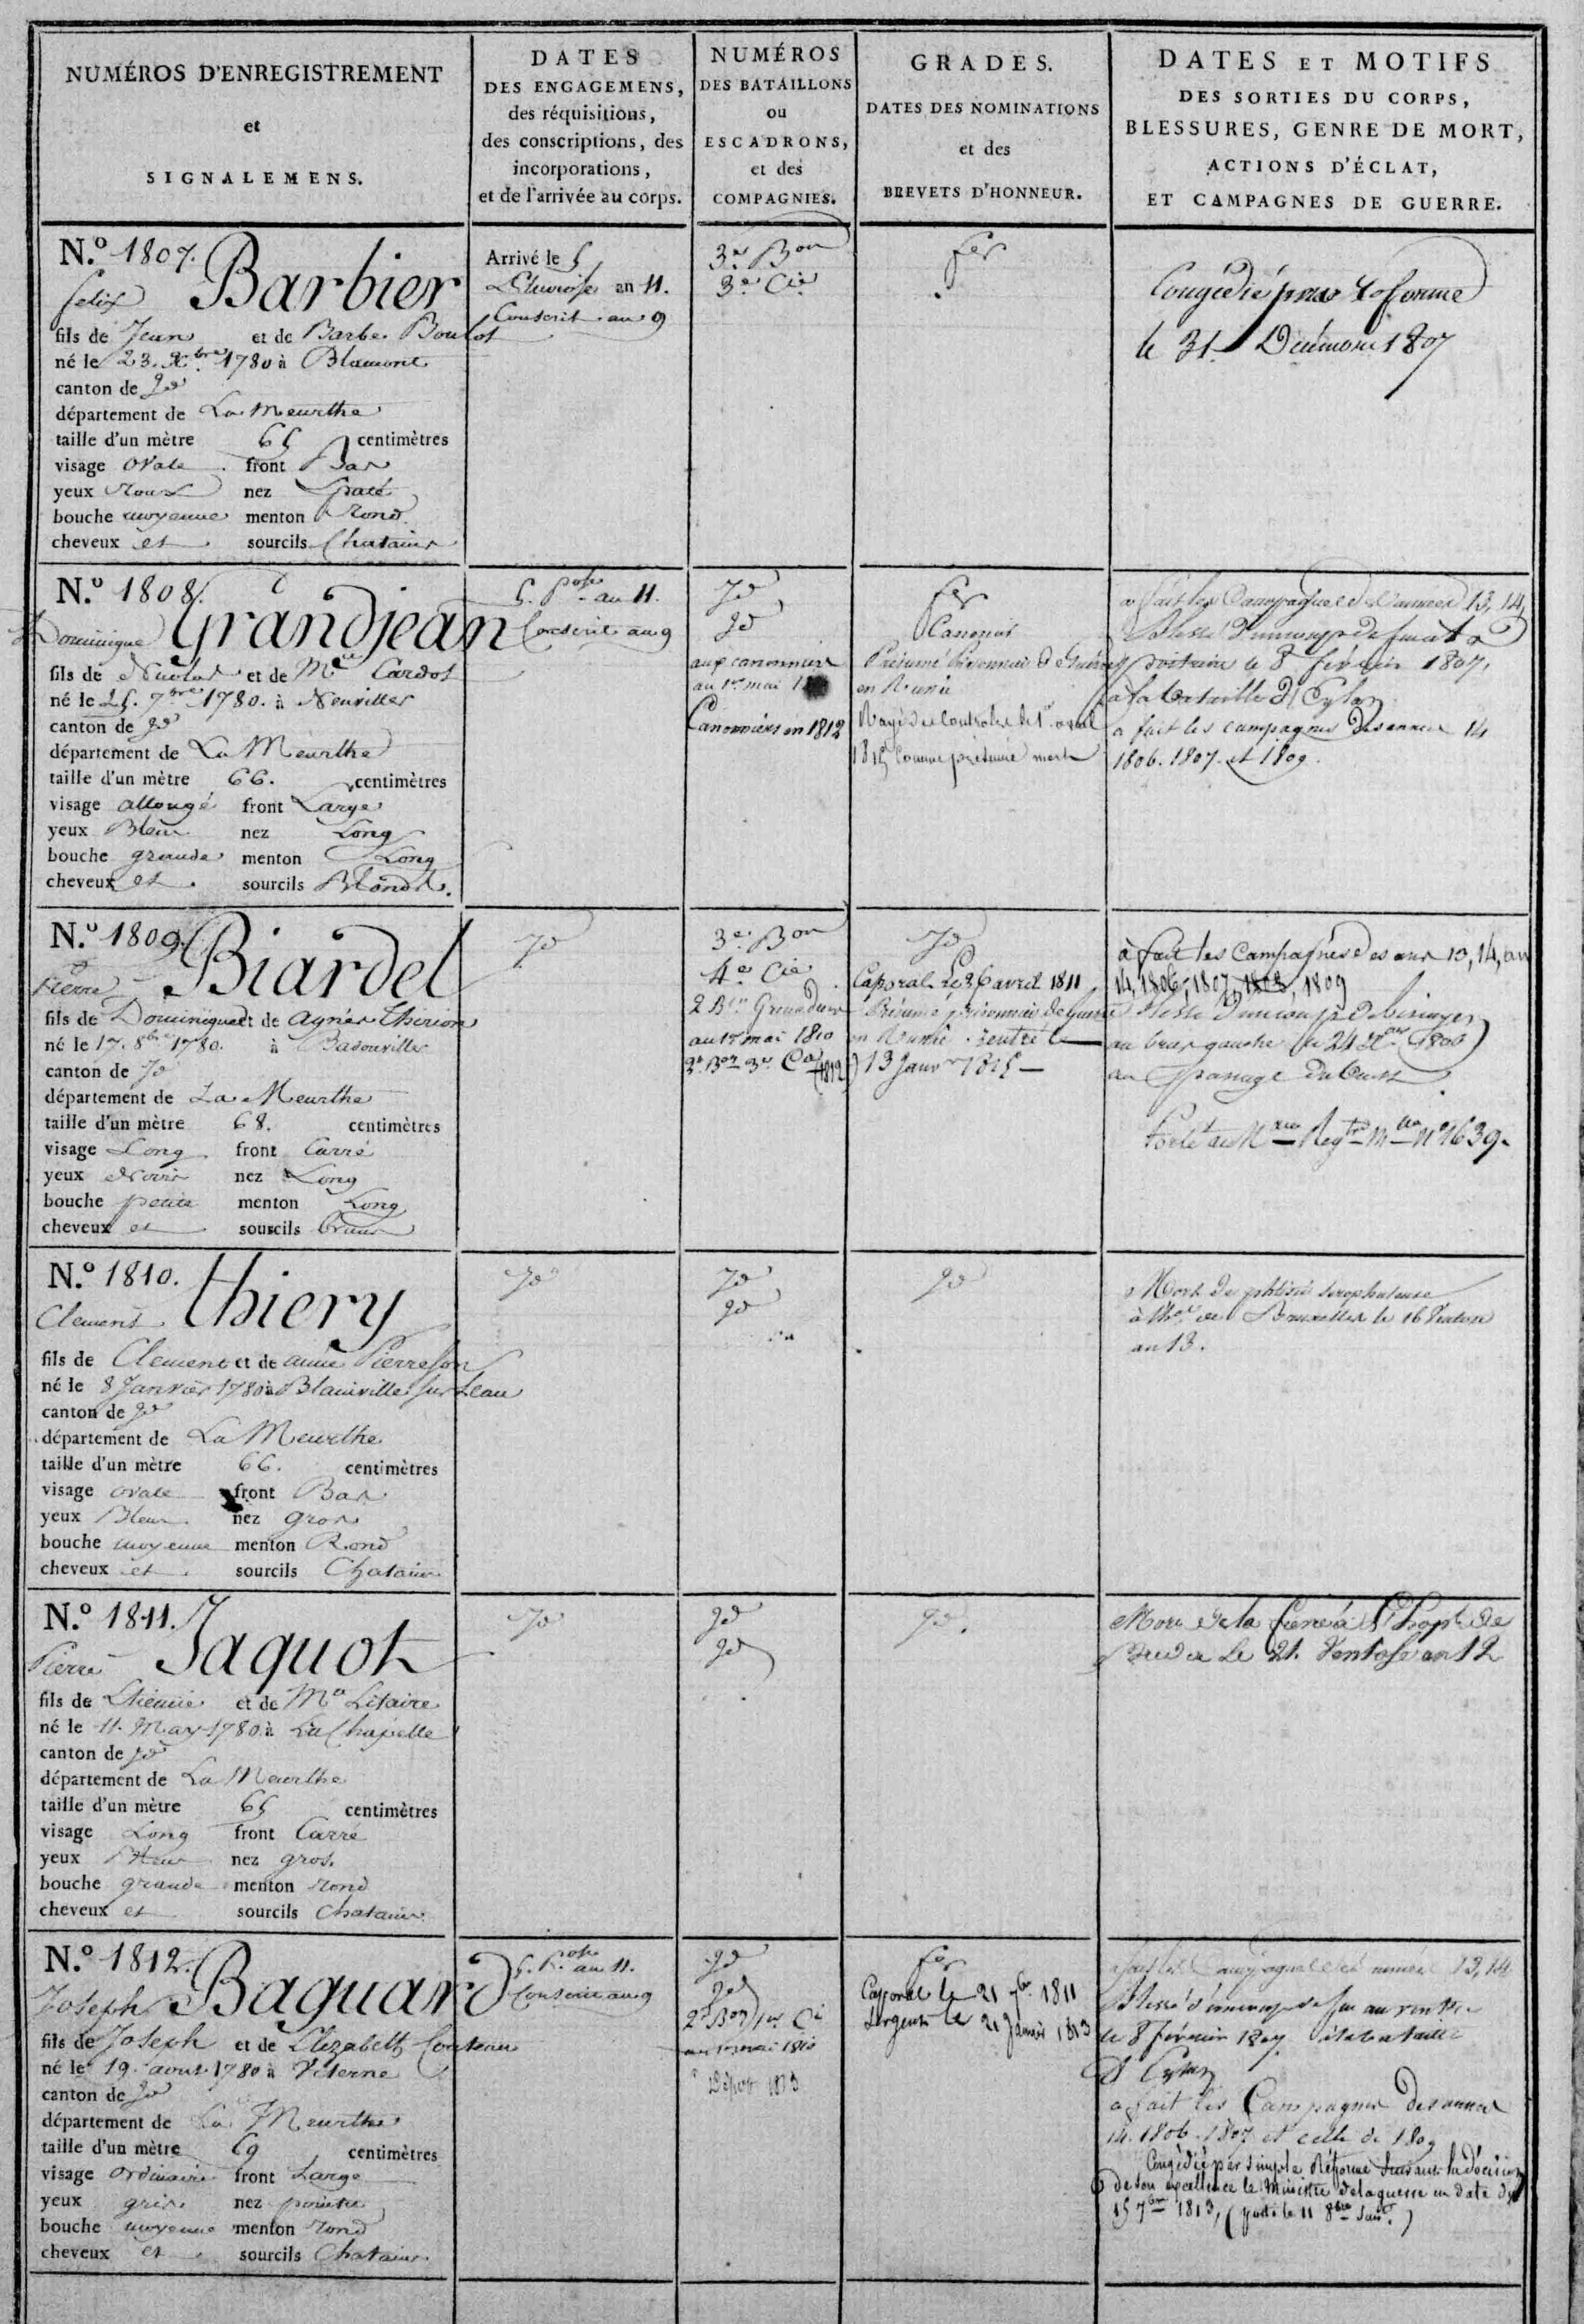 NUMÉROS D'ENREGISTREMENT
et
SIGNALEMENS.
DATES
DES ENGAGEMENS,
des réquisitions,
des conscriptions, des
incorporations,
et de l'arrivée au corps.
NUMÉROS
DES BATAILLONS
ou
ESCADRONS,
et des
COMPAGNIES.
GRADES.
DATES DES NOMINATIONS
et des
BREVETS D'HONNEUR.
DATES ET MOTIFS
DES SORTIES DU CORPS,
BLESSURES, GENRE DE MORT,
ACTIONS D'ÉCLAT,
ET CAMPAGNES DE GUERRE.
N.º 1807.
felix Barbier
fils de Jean et de Barbe Boulot
né le 23. Xbre 1780 à Blamont
canton de Jd
département de La Meurthe
taille d'un mètre 65 centimètres
visage ovale front Bas
yeux roux nez Epaté
bouche moyenne menton Rond
cheveux et sourcils Chatains
Arrivé le 5
Pluviose an 11.
Conscrit an 9
3e Bon
3e Cie
fer
Congédié pour reforme
le 31 Décembre 1807
N.º 1808.
Dominique Grandjean
fils de Nicolas et de Mie Cardot
né le 25. 7bre 1780. à Neuviller
canton de Jd
département de La Meurthe
taille d'un mètre 66. centimètres
visage allongé front Large
yeux Bleus nez Long
bouche grande menton Long
cheveux et sourcils Blonds.
5. Pose an 11.
Conscrit an 9
Jd
Jd
aux canonniers
au 1er mai
Canonniers en 1812
fer
Canonier
Présumé Prisonnier de Guerre
en Russie
Rayé des Controles le 1er avril
1815 Comme présumé mort
a fait les Campagnes des années 13, 14,
Blessé d'un coup de feu à
la poitrine le 8 février 1807,
à la bataille d'Eylau
a fait les campagnes des années 14
1806. 1807. et 1809.
N.º 1809.
Pierre Biardel
fils de Dominique et de Agnès Thirion
né le 17. 8bre 1780. à Badonviller
canton de Jd
département de La Meurthe
taille d'un mètre 68. centimètres
visage Long front Carré
yeux Noirs nez Long
bouche petite menton Long
cheveux et sourcils bruns
Jd
3e Bon
4e Cie
2 Bon Grenadiers
au 1er mai 1810
3e Bon 3e Cie (1812)
Jd
Caporal Le 26 avril 1811
Présumé prisonnier de Guerre
en Russie. rentré le
13 Janvr 1815
à fait les Campagnes des ans 13, 14, an
14, 1806, 1807, 1808, 1809
Blessé d'un coup de biscayen
au bras gauche le 24 Xbre 1806
au passage du
Porté au Nveau Regtre Mle Nº 1639.
N.º 1810.
Clement Thiery
fils de Clement et de anne Pierreson
né le 8 Janvier 1780 à Blainville sur Leau
canton de Jd
département de La Meurthe
taille d'un mètre 66. centimètres
visage ovale front Bas
yeux Bleus nez gros
bouche moyenne menton Rond
cheveux et sourcils Chatains
Jd
Jd
Jd
Jd
Mort de phtisie scrophuleuse
à l'hôl de Bruxelles le 16 Ventose
an 13.
N.º 1811.
Pierre Jaquot
fils de Etienne et de Mie Litaire
né le 11. May 1780. à La Chapelle
canton de Jd
département de La Meurthe
taille d'un mètre 65 centimètres
visage Long front Carré
yeux Bleus nez gros.
bouche grande menton rond
cheveux et sourcils Chatains
Jd
Jd
Jd
Jd.
Mort de la fievre à l'hopl de
Breda Le 21. Ventose an 12
N.º 1812.
Joseph Baguard
fils de Joseph et de Elizabeth Couteau
né le 19. aout 1780 à Viterne
canton de Jd
département de La Meurthe
taille d'un mètre 69 centimètres
visage ordinaire front Large
yeux gris nez pointu
bouche moyenne menton rond
cheveux et sourcils Chatains
5. Pose an 11.
Conscrit an 9
Jd
Jd
2e Bon 1re Cie
au 1er mai 1810
Dépot 1813
fer
Caporal le 21 1811
Sergent le 21 Janvier 1813
a fait les Campagnes des années 13, 14
Blessé d'un coup de feu au ventre
le 8 février 1807. à la bataille
d'Eylau
a fait les Campagnes des années
14. 1806. 1807 et celle de 1809
Congédié par simple Réforme suivant la décision
de son excellence le Ministre de la guerre en date du
15 7bre 1813, (parti le 11 8bre suivt.)